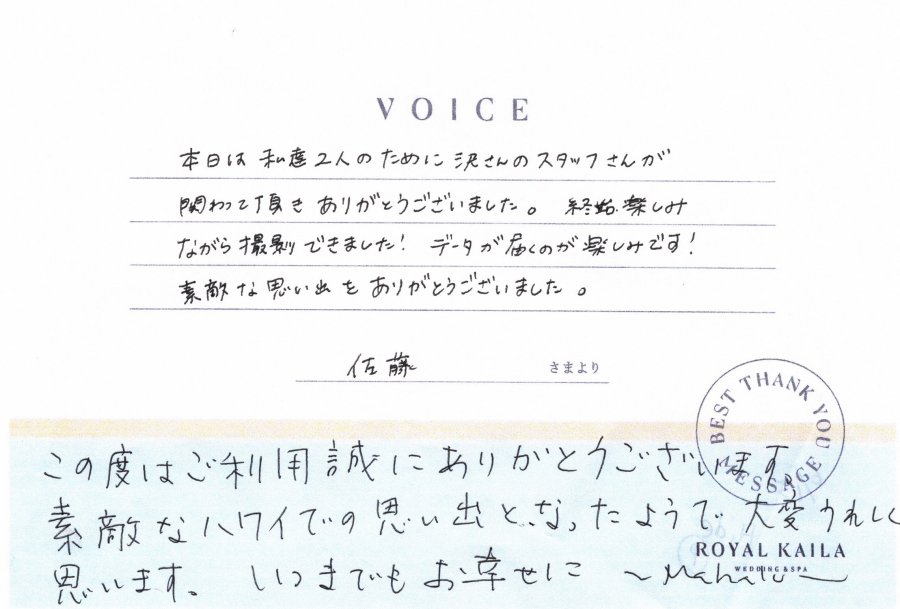 VOICE
本日は 私達2人のために 沢さんのスタッフさんが
関わって頂き ありがとうございました。 終始楽しみ
ながら撮影できました! データが届くのが楽しみです!
素敵な思い出を ありがとうございました。
佐藤 さまより
BEST THANK YOU MESSAGE
この度はご利用誠にありがとうございます。
素敵なハワイでの思い出となったようで 大変うれしく
思います。 いつまでもお幸せに ~Mahalo~
ROYAL KAILA
WEDDING & SPA